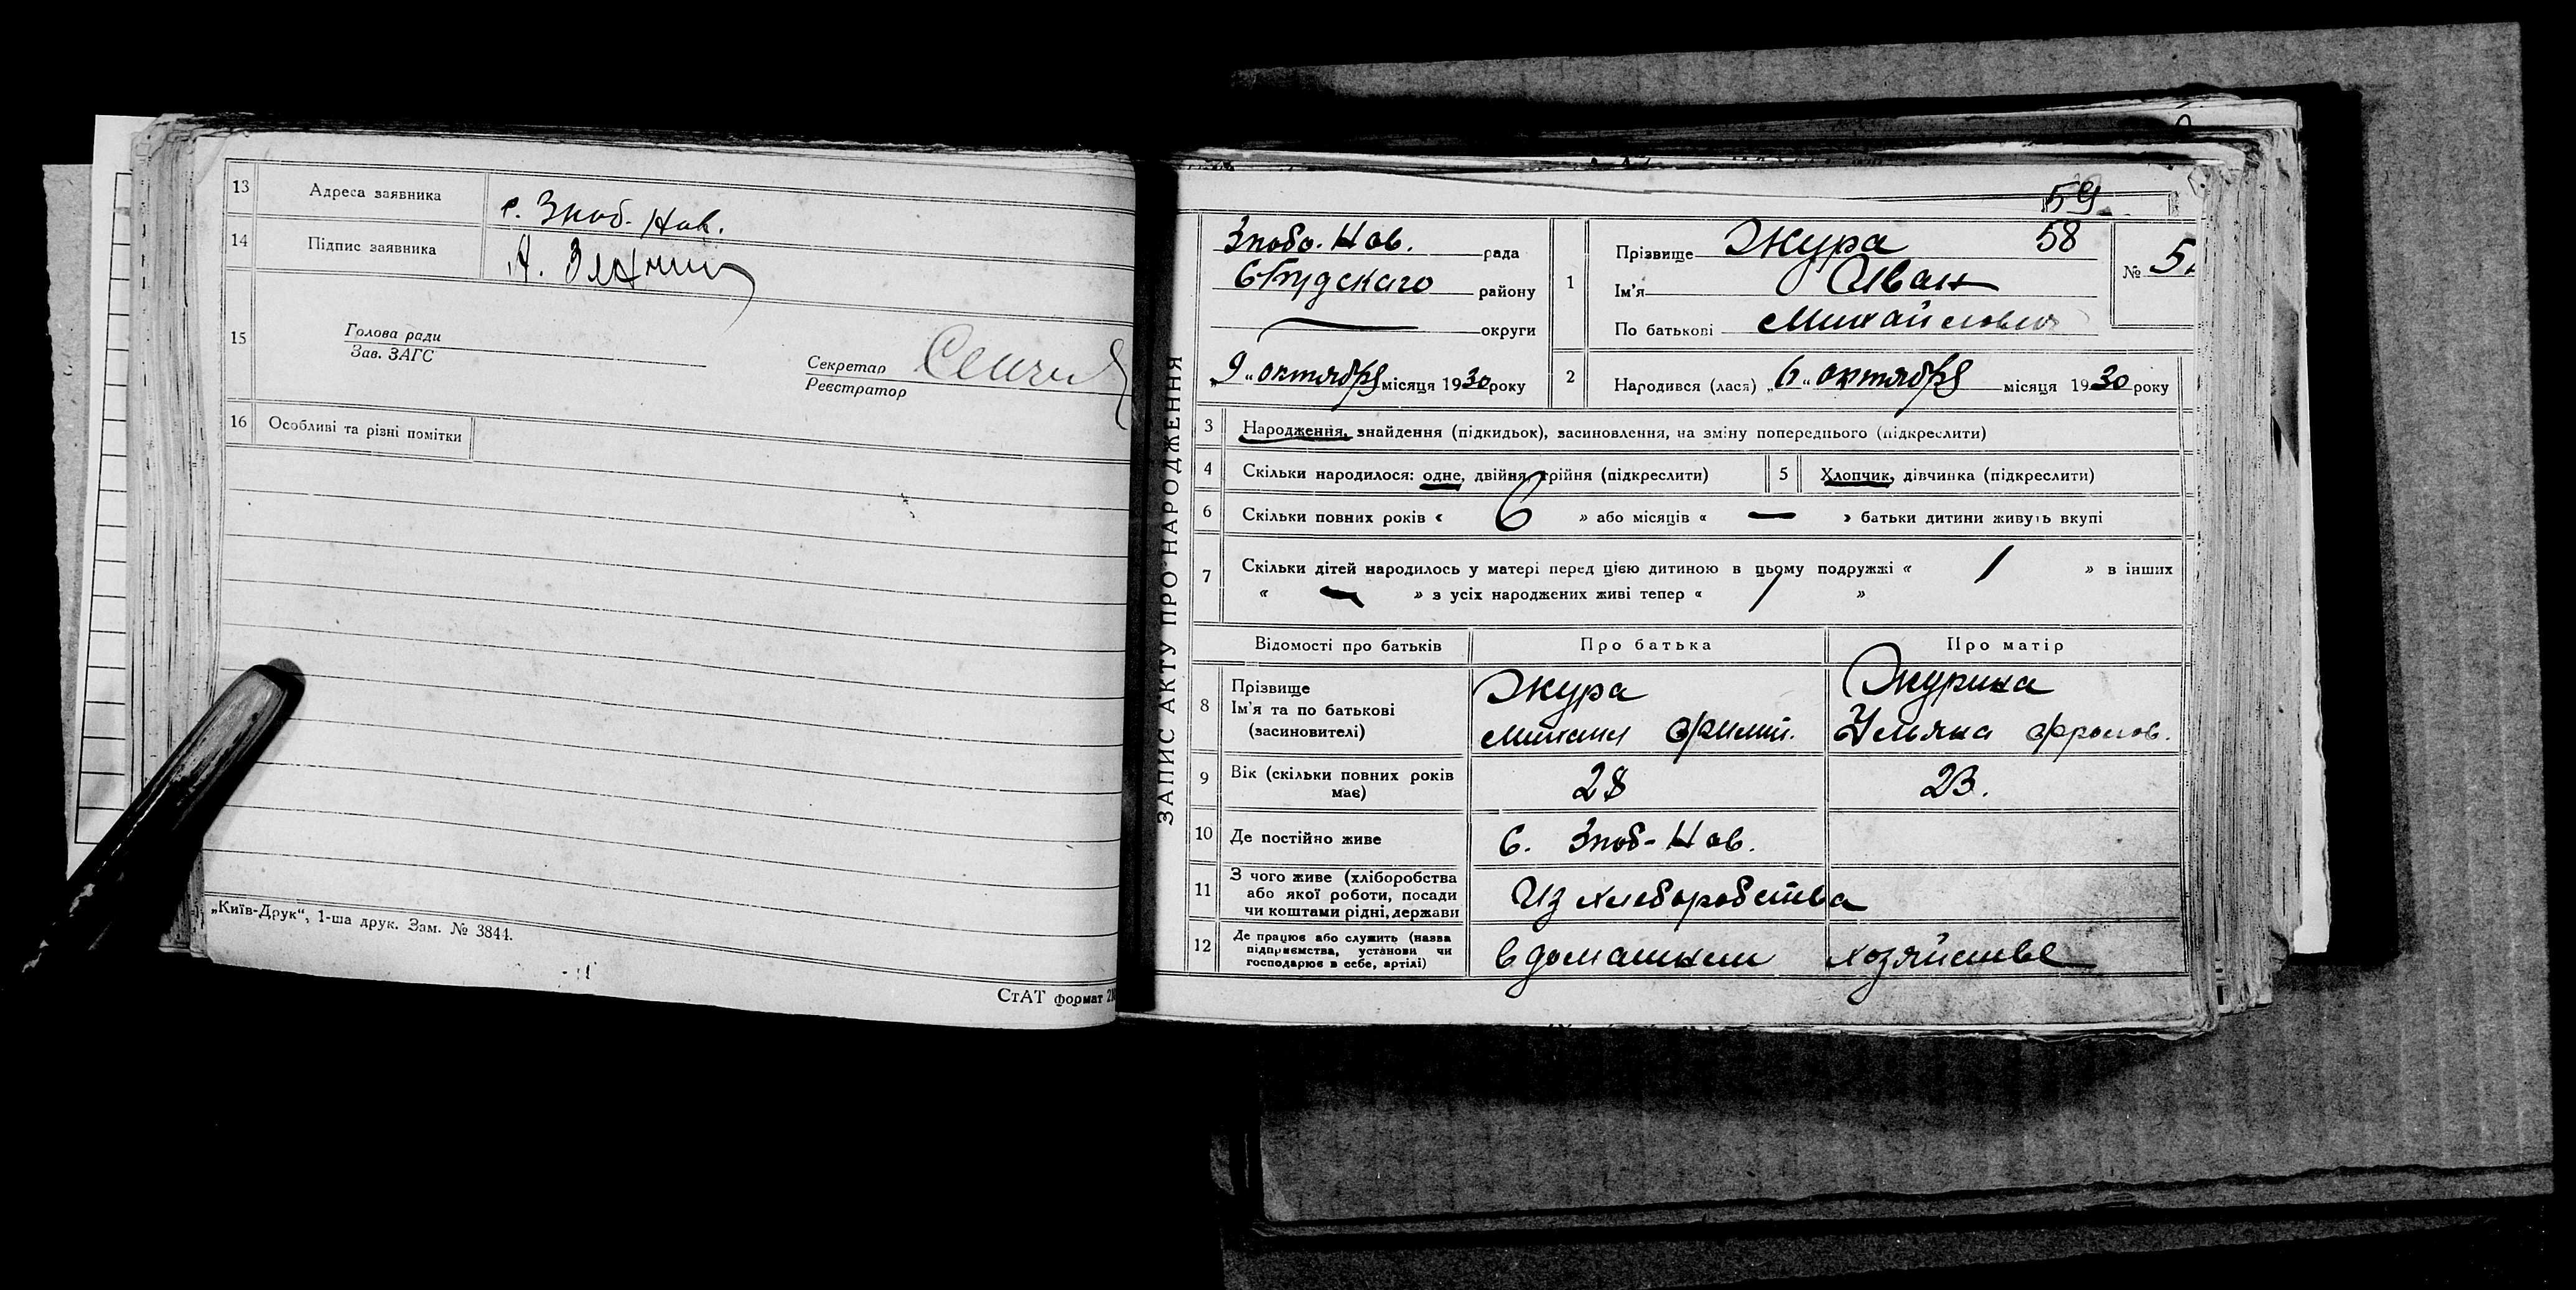 13 Адреса заявника с. Зноб. Нов.
14 Підпис заявника
15 Голова ради
Зав. ЗАГС
Секретар
Реєстратор
16 Особливі та різні помітки
„Київ-Друк“, 1-ша друк. Зам. № 3844.
СтАТ формат
ЗАПИС АКТУ ПРО НАРОДЖЕННЯ
59
58
Знобо. Нов. рада
району
округи
„9“ октября місяця 1930 року
1 Прізвище Жура
Ім'я Иван
По батькові Михайлович
№ 5
2 Народився (лася) „6“ октября місяця 1930 року
3 Народження, знайдення (підкидьок), засиновлення, на зміну попереднього (підкреслити)
4 Скільки народилося: одне, двійня, трійня (підкреслити)
5 Хлопчик, дівчинка (підкреслити)
6 Скільки повних років « 6 » або місяців « — » батьки дитини живуть вкупі
7 Скільки дітей народилось у матері перед цією дитиною в цьому подружжі « 1 » в інших
« — » з усіх народжених живі тепер « 1 »
Відомості про батьків Про батька Про матір
8 Прізвище Жура Журина
Ім'я та по батькові
(засиновителі) Михаил Филип. Ульяна Фролов.
9 Вік (скільки повних років
має) 28 23.
10 Де постійно живе с. Зноб-Нов.
11 З чого живе (хліборобства
або якої роботи, посади
чи коштами рідні, держави Из хлеборобства
12 Де працює або служить (назва
підприємства, установи чи
господарює в себе, артілі) в домашнем хозяйстве